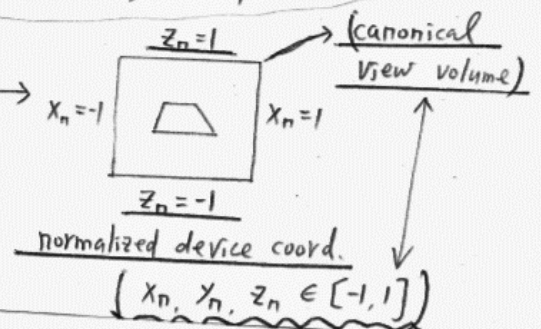 Zn=1
(canonical
view volume)
Xn=-1
Xn=1
Zn=-1
normalized device coord.
(Xn, Yn, Zn ∈ [-1, 1])